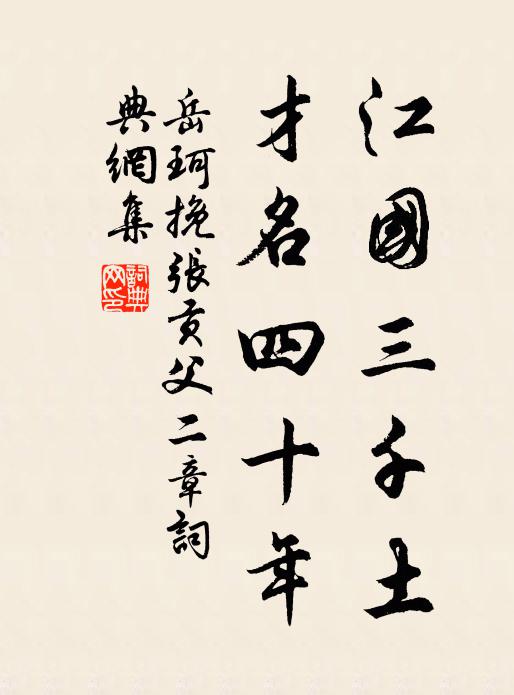 江國三千土
才名四十年
岳珂挽張貢父二章詞
典網集
詞典
网印